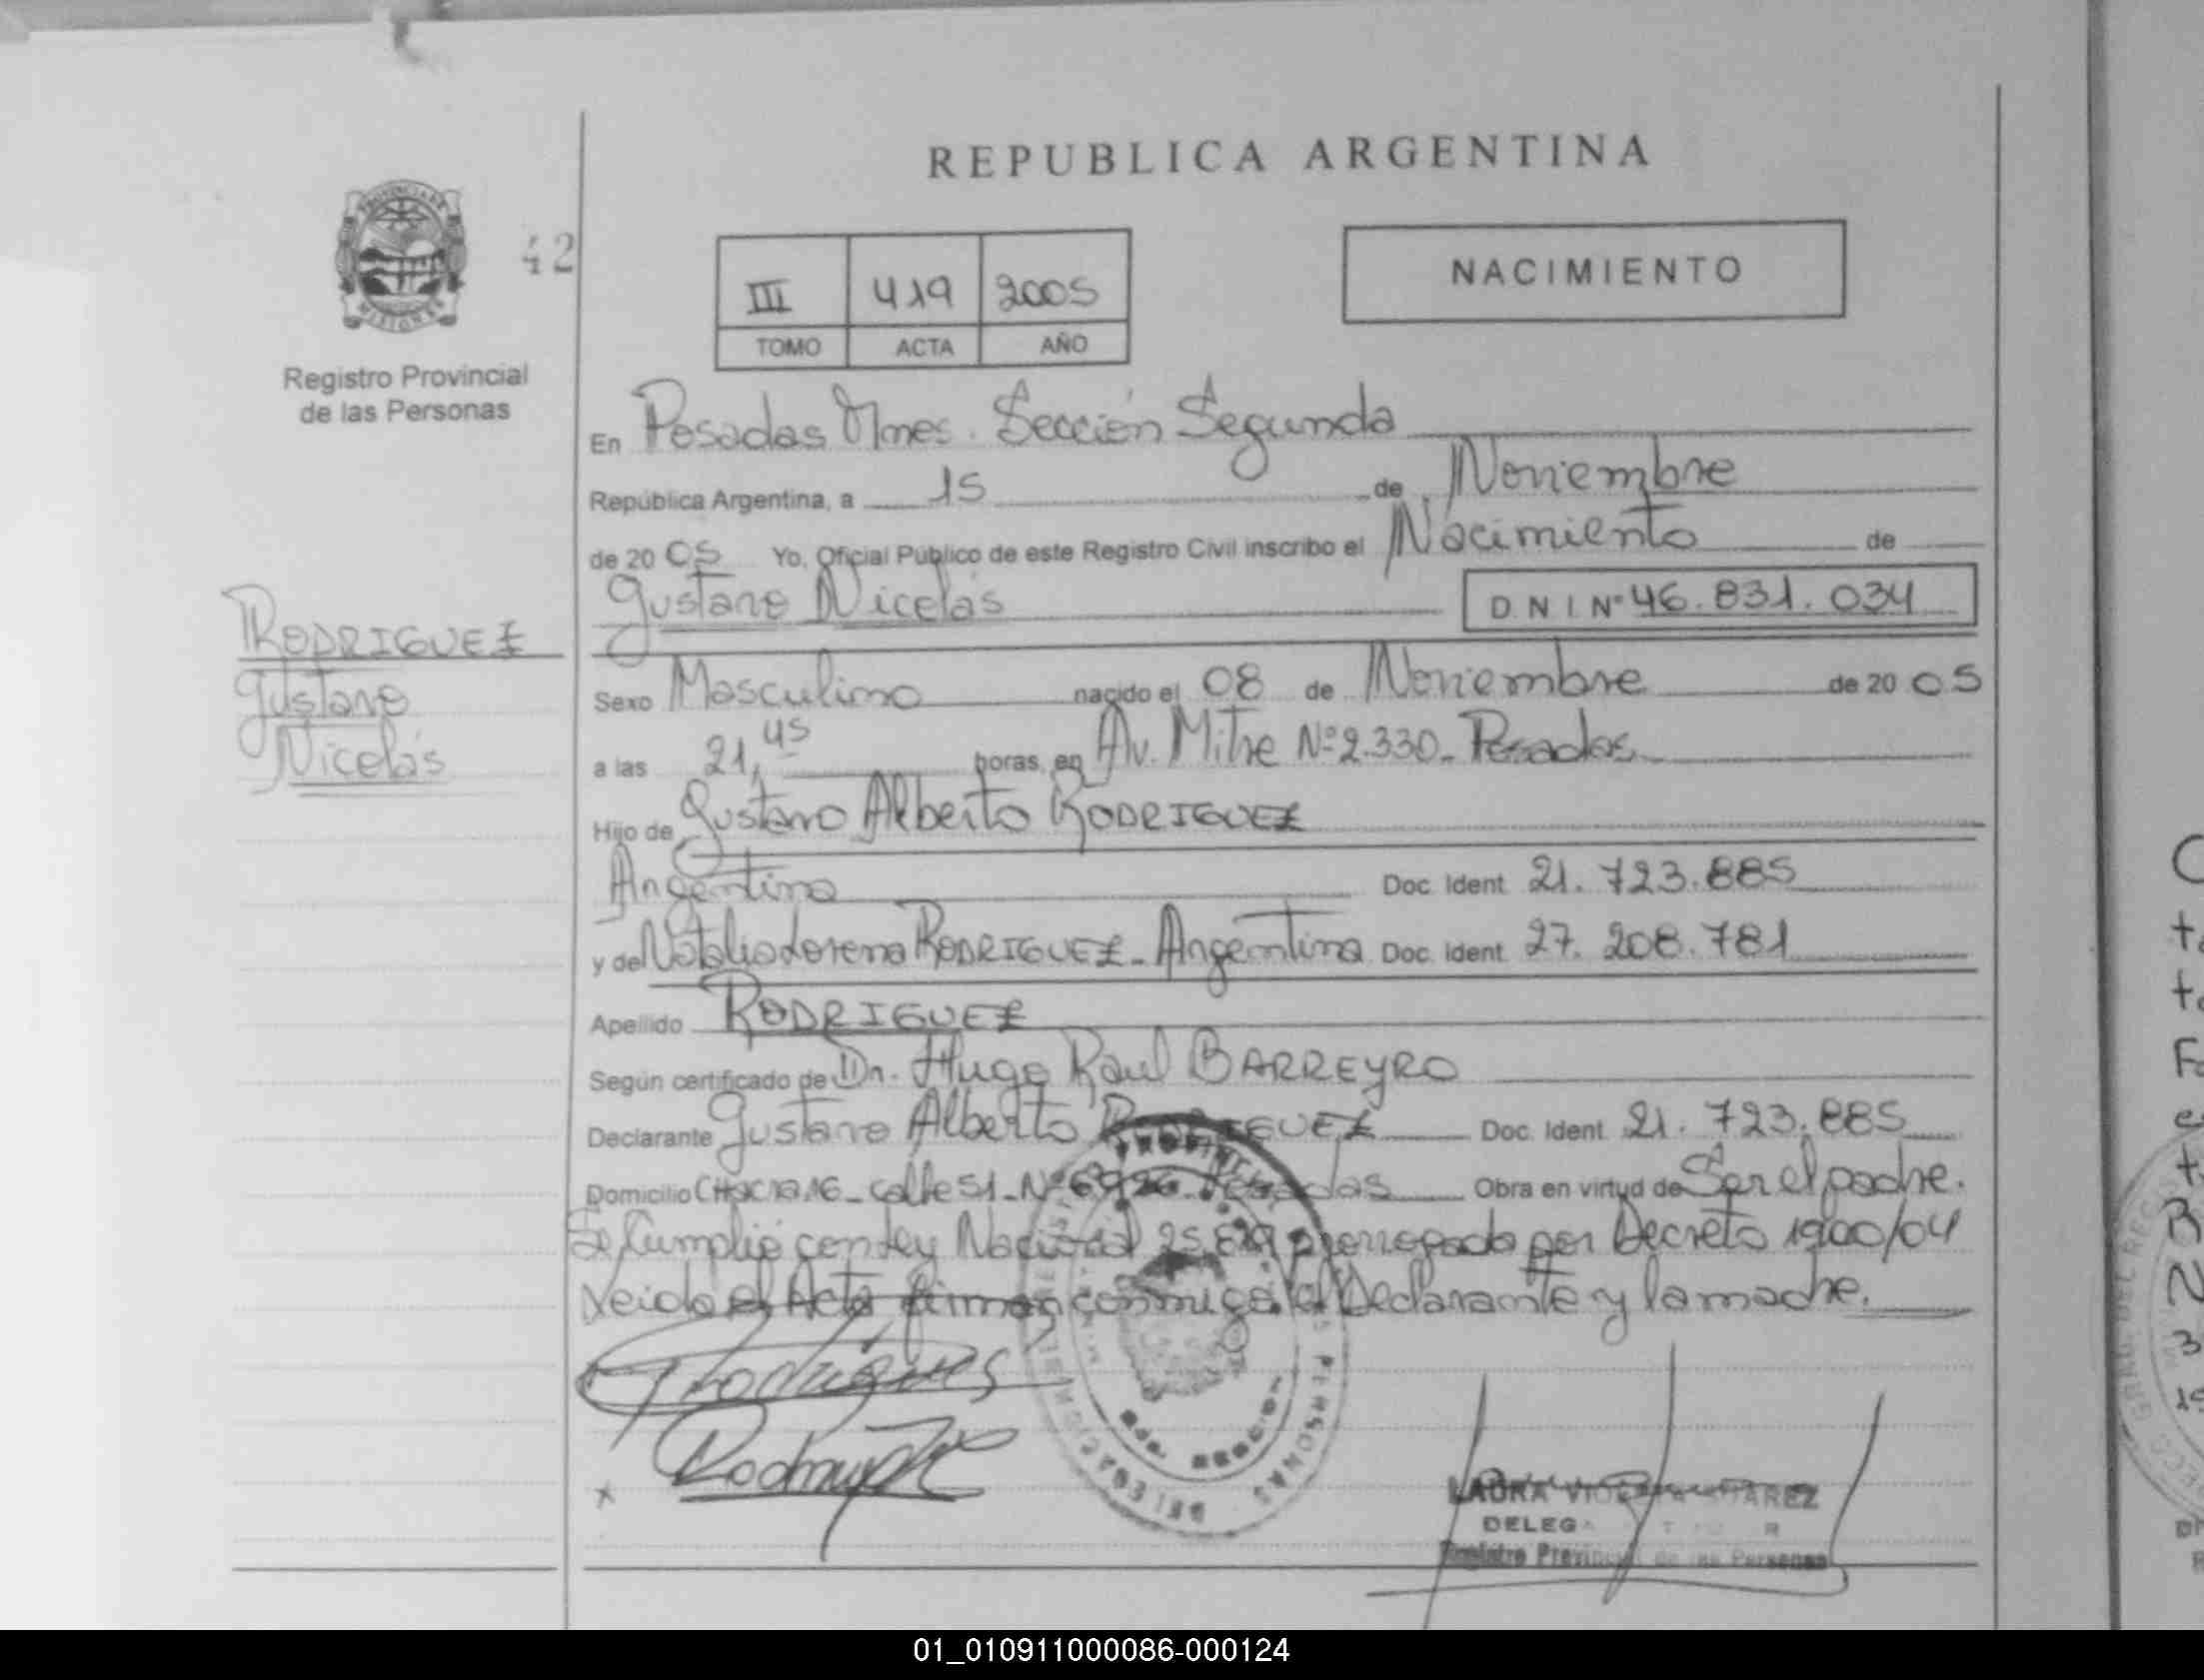 REPUBLICA ARGENTINA
PROVINCIA DE
MISIONES
42
III 419 2005
TOMO ACTA AÑO
NACIMIENTO
Registro Provincial
de las Personas
En Posadas Mnes. Sección Segunda
República Argentina, a 15 de Noviembre
de 20 05 Yo, Oficial Público de este Registro Civil inscribo el Nacimiento de
Gustavo Nicolás D.N.I. Nº 46.831.034
RODRIGUEZ
Gustavo
Nicolás
Sexo Masculino nacido el 08 de Noviembre de 20 05
a las 21,45 horas, en Av. Mitre Nº 2.330- Posadas
Hijo de Gustavo Alberto RODRIGUEZ
Argentino Doc. Ident. 21.723.885
y de Natalia Lorena RODRIGUEZ- Argentina Doc. Ident. 27.208.781
Apellido RODRIGUEZ
Según certificado de Dr. Hugo Raul BARREYRO
Declarante Gustavo Alberto RODRIGUEZ Doc. Ident. 21.723.885
Domicilio Chacra 16- calle 51- Nº Posadas Obra en virtud de Ser el padre.
Se Cumplió con Ley Nacional 25.819 prorrogada por Decreto 1900/04
Leida el Acta firman conmigo el Declarante y la madre.
Rodrigues
x
LAURA SUAREZ
DELEG
Registro Provincial de las Personas
01_010911000086-000124